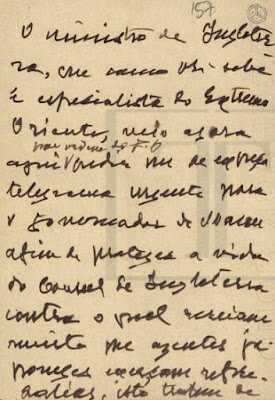 157
O ministro de Inglater
ra, que como V. Exª sabe
é especialista do Extremo
Oriente, veio agora
por ordem do F. O
aqui pedir me de expeça
telegrama urgente para
o Governador de Macau
afim de proteger a vida
do Consul de Inglaterra
contra o qual receiam
muito que agentes ja
poneses exerçam repre
salias, isto